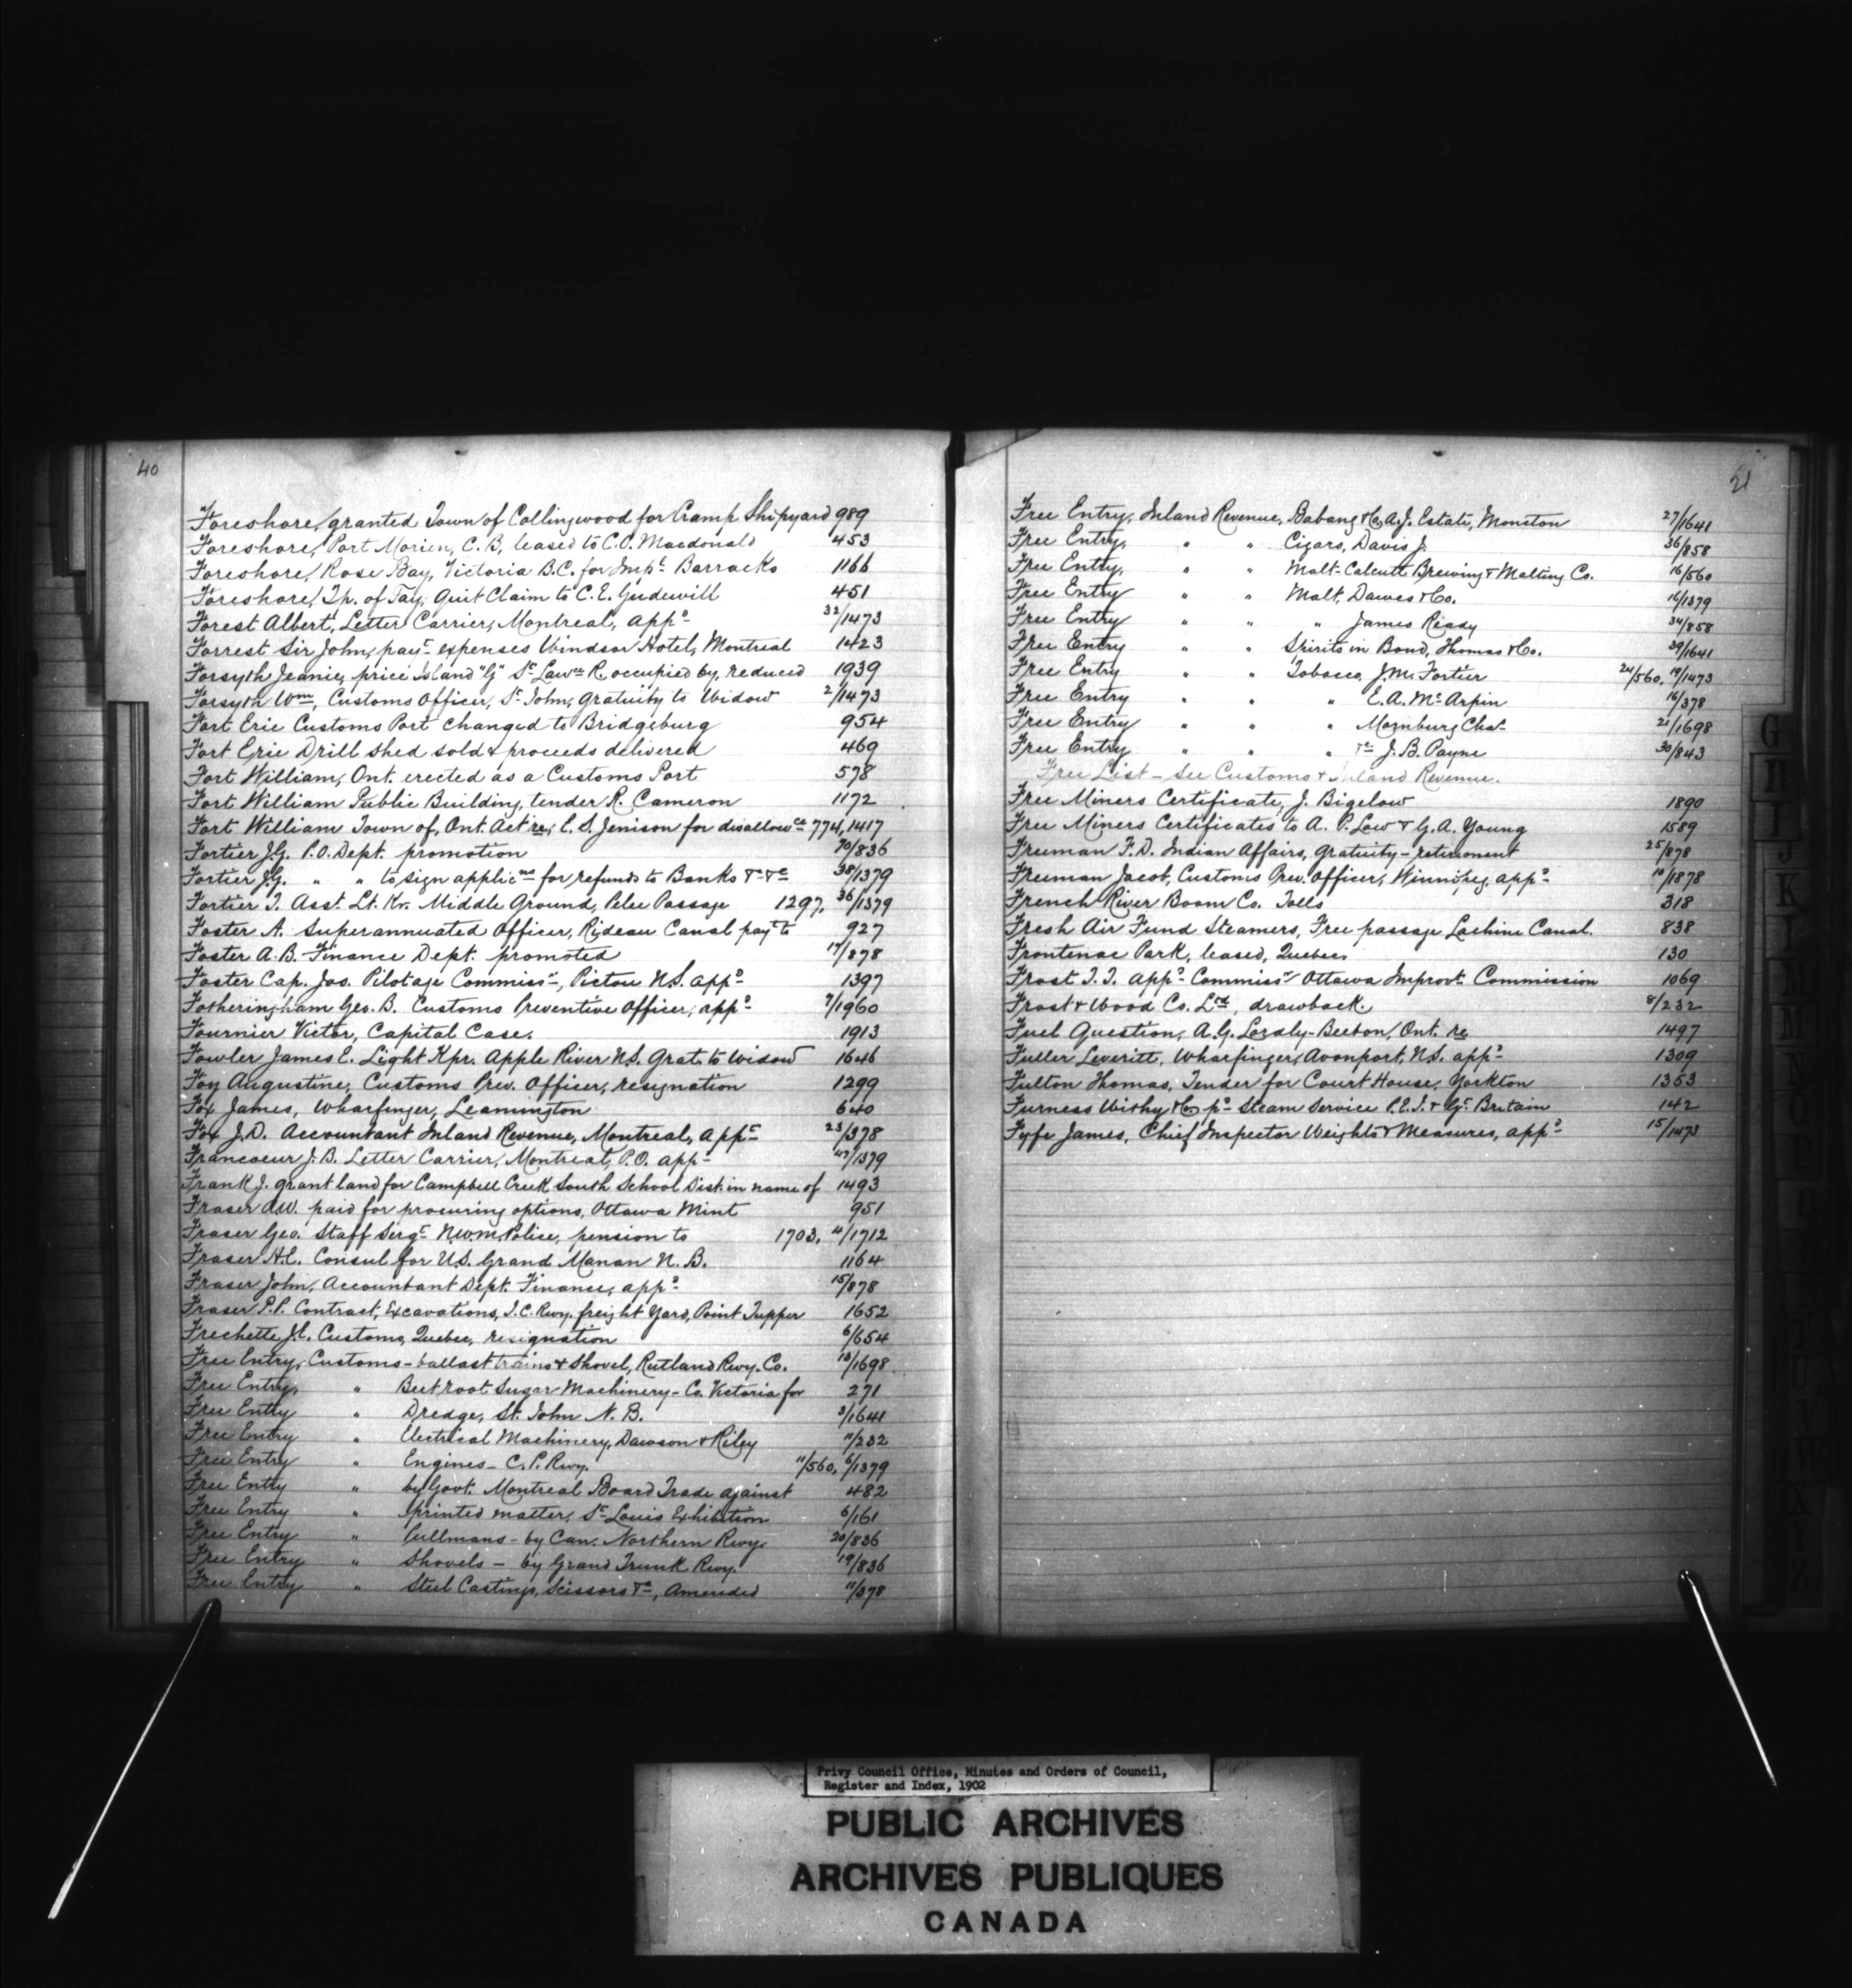 40
Foreshore, granted Town of Collingwood for Cramp Shipyard 989
Foreshore, Port Morien, C.B, leased to C.O. Macdonald 453
Foreshore, Rose Bay, Victoria B.C. for Impl Barracks 1166
Foreshore, Tp. of Tay, Quit Claim to C.E. Gudewill 451
Forest Albert, Letter Carrier, Montreal, appd 32/1473
Forrest Sir John, payt expenses Windsor Hotel, Montreal 1423
Forsyth Jeanie, price Island "G" St Lawce R. occupied by, reduced 1939
Forsyth Wm, Customs Officer, St John, gratuity to Widow 2/1473
Fort Erie Customs Port changed to Bridgeburg 954
Fort Erie Drill Shed sold & proceeds delivered 469
Fort William, Ont. erected as a Customs Port 578
Fort William Public Building, tender R. Cameron 1172
Fort William Town of, Ont. Act re, E.S. Jenison for disallowce 774, 1417
Fortier J.G. P.O. Dept. promotion 70/836
Fortier J.G. " " to sign applicns for refunds to Banks &c &c 38/1379
Fortier T. Asst. Lt. Kr. Middle Ground, Pelee Passage 1297, 36/1379
Foster A. Superannuated Officer, Rideau Canal payt to 927
Foster A.B. Finance Dept. promoted 17/878
Foster Cap. Jos. Pilotage Commissr, Pictou N.S. appd 1397
Fotheringham Geo. B. Customs Preventive Officer, appd 7/1960
Fournier Victor, Capital Case. 1913
Fowler James E. Light Kpr. Apple River N.S. Grat. to Widow 1646
Foy Augustine, Customs Prev. Officer, resignation 1299
Fox James, Wharfinger, Leamington 640
Fox J.D. Accountant Inland Revenue, Montreal, appt 23/378
Francoeur J.B. Letter Carrier, Montreal, P.O. app 47/1379
Frank J. grant land for Campbell Creek South School Dist. in name of 1493
Fraser A.W. paid for procuring options, Ottawa Mint 951
Fraser Geo. Staff Sergt N.W.M. Police, pension to 1703, 11/1712
Fraser H.C. Consul for U.S. Grand Manan N.B. 1164
Fraser John, Accountant Dept. Finance, appd 15/878
Fraser P.P. Contract, Excavations, I.C. Rwy. freight Yard, Point Tupper 1652
Frechette J.C. Customs, Quebec, resignation 6/654
Free Entry, Customs - ballast trains & Shovel, Rutland Rwy. Co. 13/1698
Free Entry, " Beet root Sugar Machinery - Co. Victoria for 271
Free Entry " Dredge, St. John N.B. 3/1641
Free Entry " Electrical Machinery, Dawson & Riley 11/232
Free Entry " Engines - C.P. Rwy. 11/560, 6/1379
Free Entry " by Govt. Montreal Board Trade against 482
Free Entry " printed matter, St Louis Exhibition 6/161
Free Entry " Pullmans - by Can. Northern Rwy. 20/836
Free Entry " Shovels - by Grand Trunk Rwy. 19/836
Free Entry " Steel Castings, Scissors &c, Amended 11/378
21
Free Entry, Inland Revenue, Babang & Co, A.J. Estate, Moncton 27/1641
Free Entry, " " Cigars, Davis J. 36/858
Free Entry, " " Malt - Calcutt Brewing & Malting Co. 16/560
Free Entry " " Malt, Dawes & Co. 16/1379
Free Entry " " " James Ready 34/858
Free Entry " " Spirits in Bond, Thomas & Co. 29/1641
Free Entry " " Tobacco, J.M. Fortier 24/560, 19/1473
Free Entry " " " E.A. Mc Arpin 16/378
Free Entry " " " Mornburg Chas 21/1698
Free Entry " " " &c J.B. Payne 30/843
Free List - See Customs & Inland Revenue.
Free Miners Certificate, J. Bigelow 1890
Free Miners Certificates to A.P. Low & G.A. Young 1589
Freeman F.D. Indian Affairs, Gratuity - retirement 25/878
Freeman Jacob, Customs Prev. Officer, Winnipeg, appd 10/1878
French River Boom Co. Tolls 318
Fresh Air Fund Steamers, Free passage Lachine Canal. 838
Frontenac Park, leased, Quebec 130
Frost T.T. appd Commissr Ottawa Improvt. Commission 1069
Frost & Wood Co. Ltd, drawback. 8/232
Fuel Question, A.G. Lordly - Beeton, Ont. re 1497
Fuller Leveritt, Wharfinger, Avonport, N.S. appd 1309
Fulton Thomas, Tender for Court House, Yorkton 1353
Furness Withy & Co pd Steam Service P.E.I. & Gt Britain 142
Fyfe James, Chief Inspector Weights & Measures, appd 15/1473
G
H
I
J
K
Privy Council Office, Minutes and Orders of Council,
Register and Index, 1902
PUBLIC ARCHIVES
ARCHIVES PUBLIQUES
CANADA